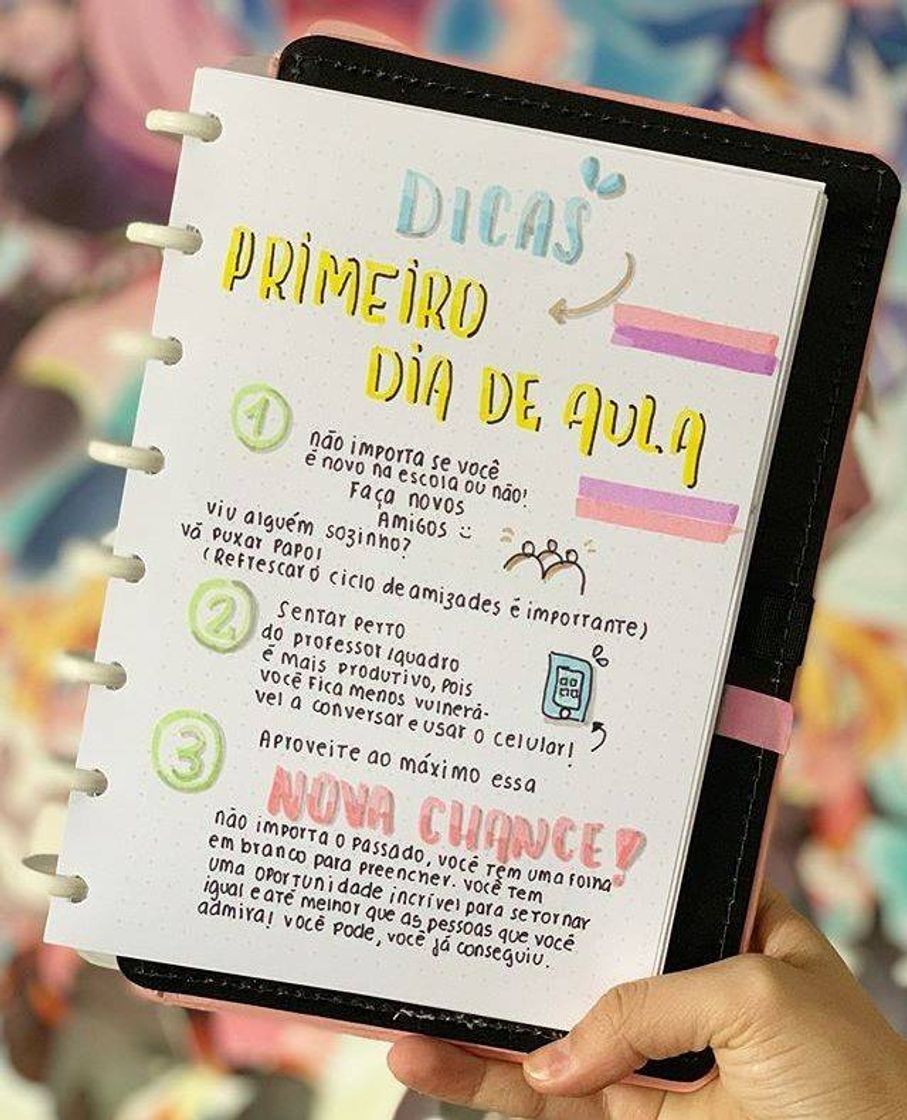 DICAS
PRIMEIRO
DIA DE AULA
1
não importa se você
é novo na escola ou não!
Faça novos
Amigos :)
viu alguém sozinho?
vá puxar papo!
(Refrescar o ciclo de amizades é importante)
2
Sentar perto
do professor/quadro
é mais produtivo, pois
você fica menos vulnerá-
vel a conversar e usar o celular!
3
Aproveite ao máximo essa
NOVA CHANCE!
não importa o passado, você tem uma folha
em branco para preencher. você tem
uma oportunidade incrível para se tornar
igual e até melhor que as pessoas que você
admira! você pode, você já conseguiu.